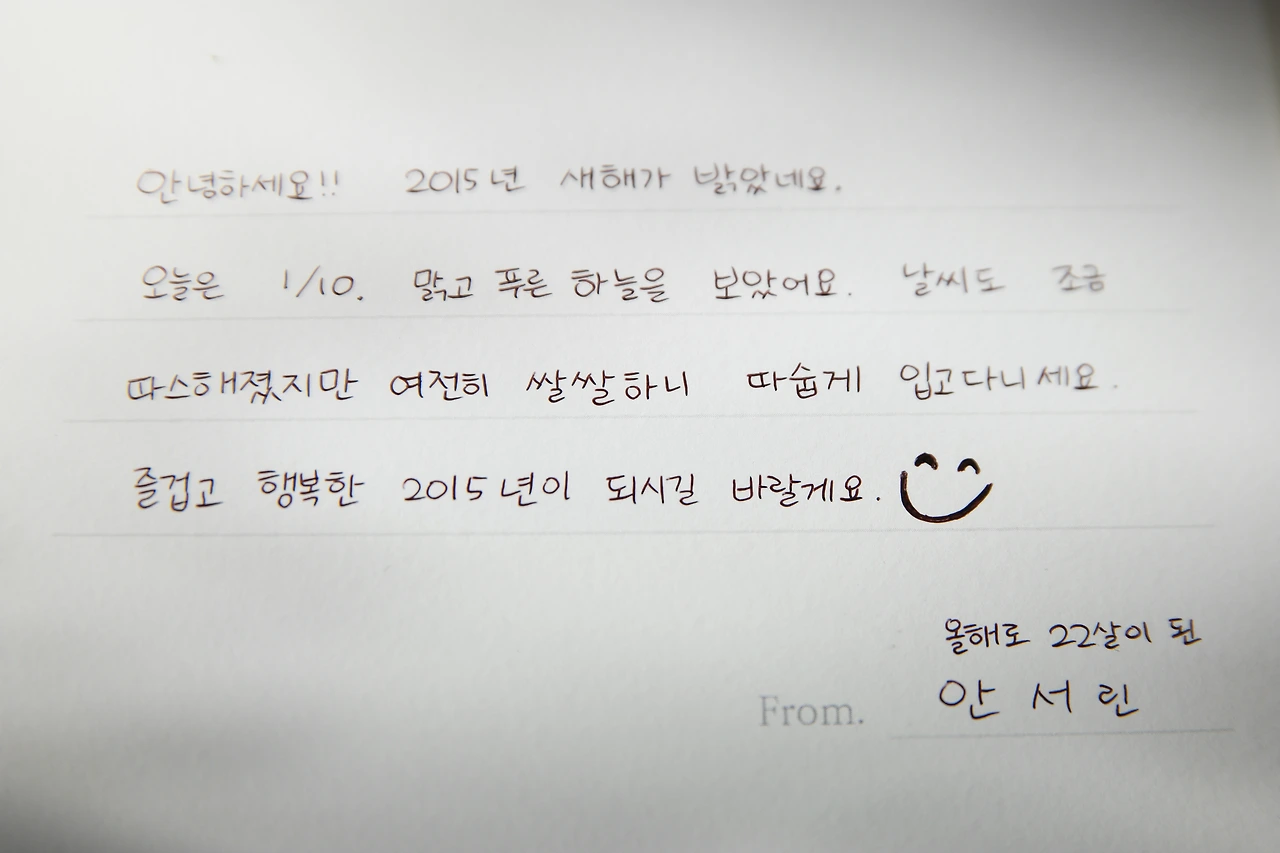 안녕하세요!! 2015년 새해가 밝았네요.
오늘은 1/10. 맑고 푸른 하늘을 보았어요. 날씨도 조금
따스해졌지만 여전히 쌀쌀하니 따숩게 입고다니세요.
즐겁고 행복한 2015년이 되시길 바랄게요.
올해로 22살이 된
From. 안서린